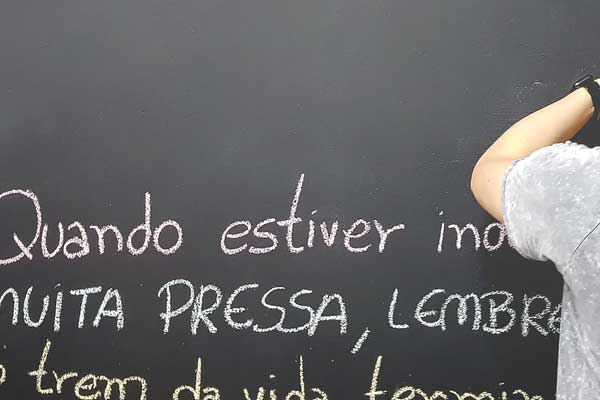 Quando estiver
MUITA PRESSA, LEMBRE
trem da vida